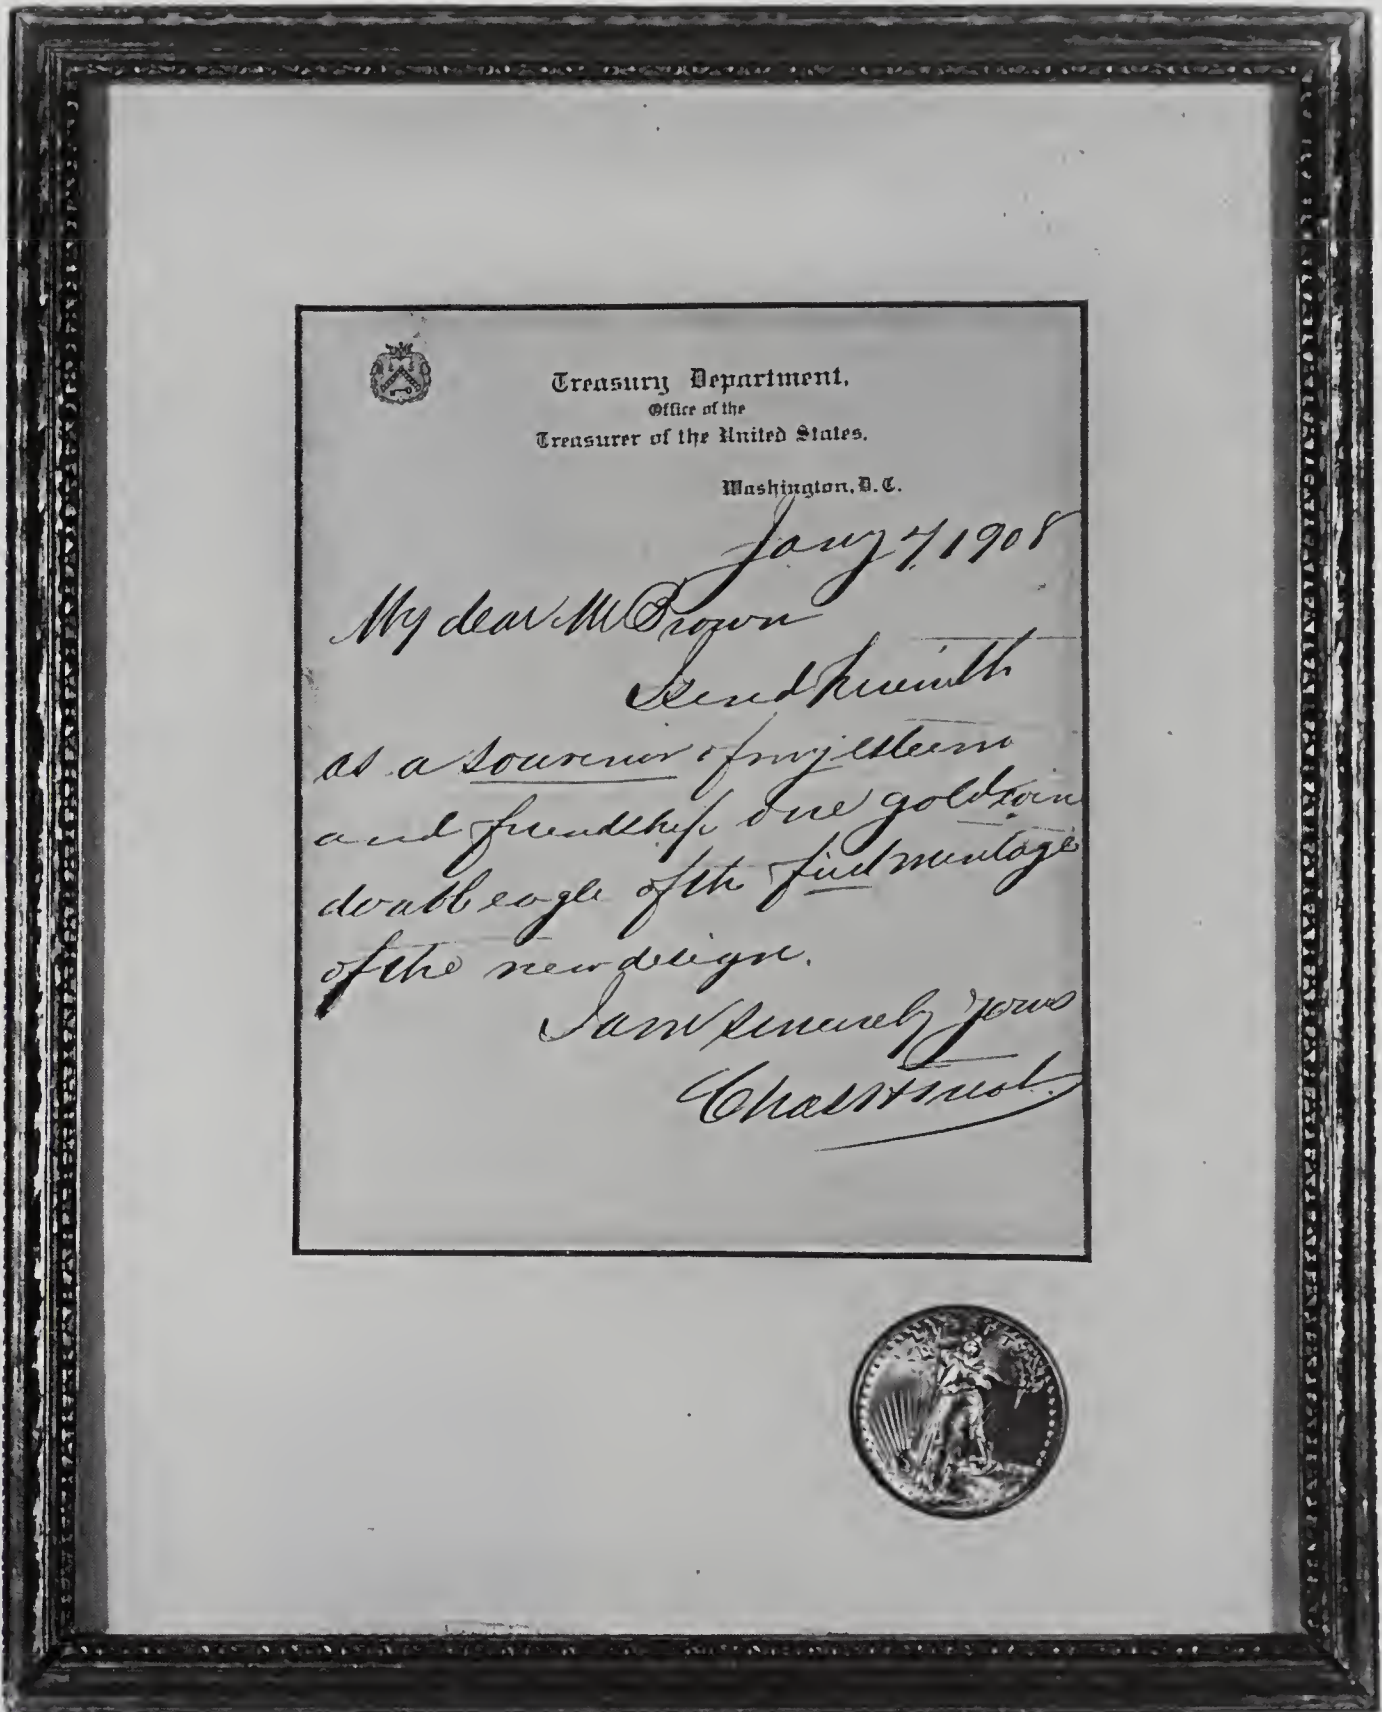 Treasury Department,
Office of the
Treasurer of the United States.
Washington, D. C.
Jany 7, 1908
My dear Mr Brown
I send herewith
as a souvenir of my esteem
and friendship one gold coin
double eagle of the first mintage
of the new design.
I am sincerely yours
Chas H Treat.